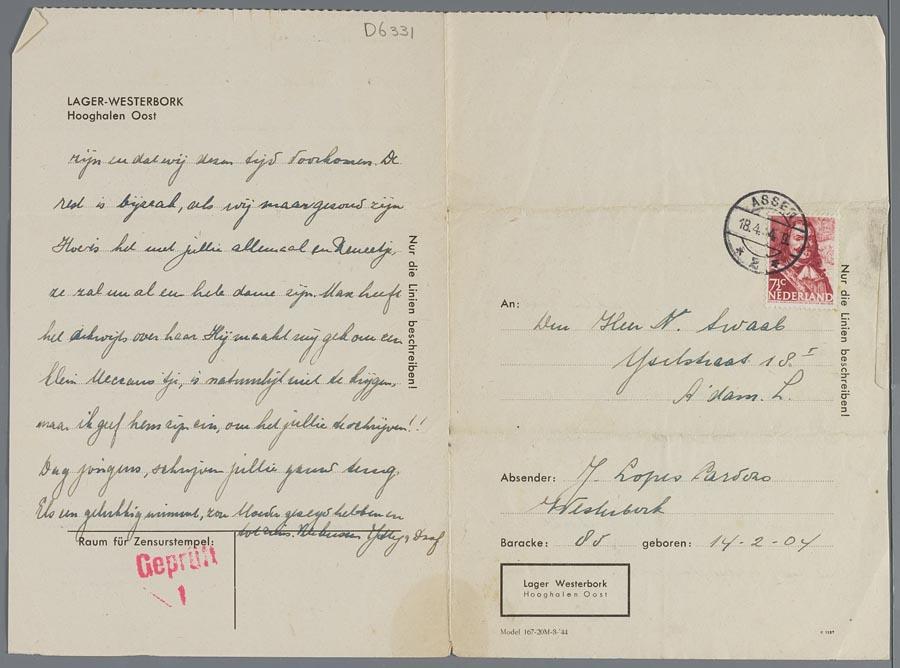 D6331
LAGER-WESTERBORK
Hooghalen Oost
zijn en dat wij dezen tijd doorkomen. De
rest is bijzaak, als wij maar gezond zijn
Hoe is het met jullie allemaal en
ze zal nu al een hele dame zijn. Max heeft
het over haar Hij maakt mij gek om een
klein , is natuurlijk niet te krijgen,
maar ik geef hem zijn zin, om het jullie te schrijven!!
Dag jongens, schrijven jullie gauw terug.
Els een gelukkig , zou Moeder gezegd hebben en
tot ziens.
Nur die Linien beschreiben!
Raum für Zensurstempel:
Geprüft
1
ASSEN
18.4.44
2
7½c
NEDERLAND
Nur die Linien beschreiben!
An:
Den Heer N. Swaab
Yselstraat 18 I
A'dam. Z.
Absender: J. Lopes Cardozo
Westerbork
Baracke: 85 geboren: 14-2-04
Lager Westerbork
Hooghalen Oost
Model 167-20M-8-'44